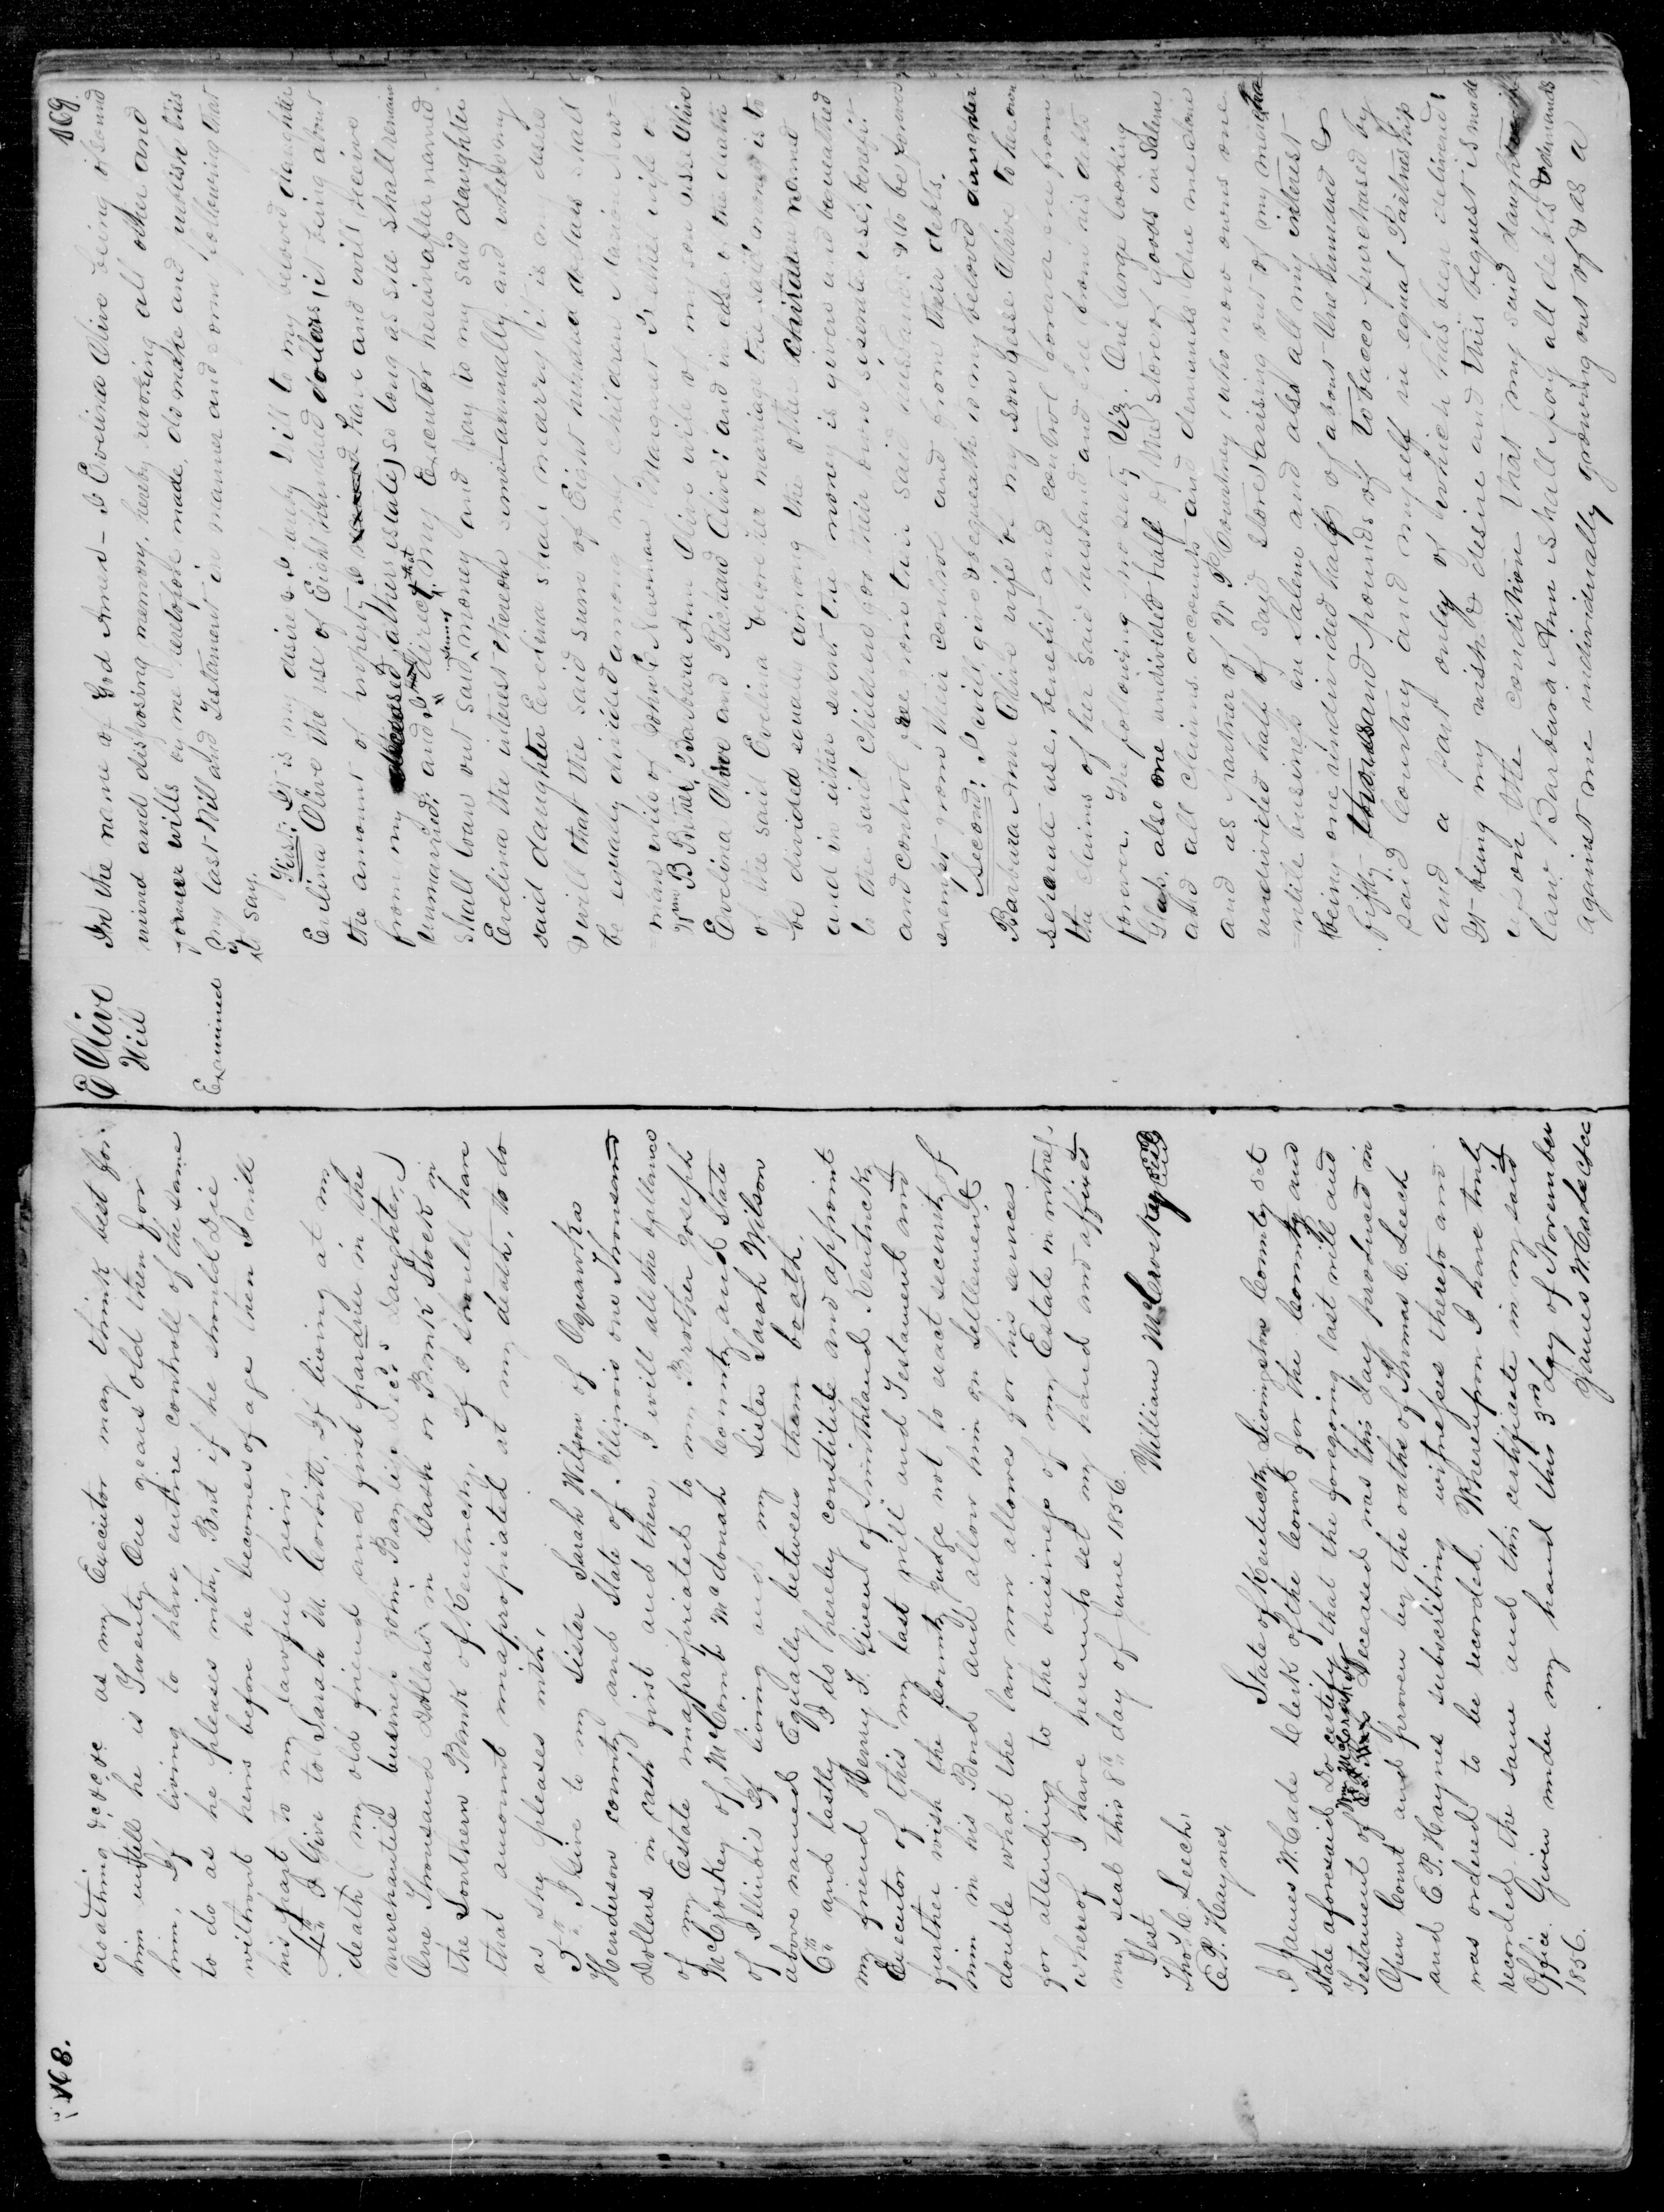 168.
cloathing &c &c &c as my Executor may think best for
him untill he is Twenty One years old then for
him, If living to have entire controll of the same
to do as he pleases with, But if he should Die
without heirs before he becomes of age then I will
his part to my lawful heirs,
4th I Give to Sarah M. Corbitt, If living at my
death (my old friend and first pardner in the
merchantile business John Baylis Decd. Daughter)
One Thousand Dollars in Cash or Bank Stock in
the Southern Bank of Kentucky, if I should have
that amount unapropriated at my death, to do
as she pleases with,
5th I Give to my Sister Sarah Wilson of Oquawka
Henderson County and State of Illinois one Thousand
Dollars in cash first and then I will all the ballance
of my Estate unapropriated to my Brother Joseph
McCroskey of McComb McDonah County and State
of Illinois If living and my Sister Sarah Wilson
above named Equally between them boath.
6th and lastly I do hereby constitute and appoint
my friend Henry F. Given of Smithland Kentucky
Executor of this my last will and Testament and
further wish the County Judge not to exact security of
him in his Bond and allow him on Settlement
double what the law now allowes for his services
for attending to the business of my Estate in witness
whereof I have hereunto set my hand and affixed
my seal this 8th day of June 1856.
William McCroskey
Test
Thos C. Leech,
E. P. Haynes,
State of Kentucky Livingston County Sct
I James W. Cade Clerk of the Court for the County and
State aforesaid Do certify that the foregoing last will and
Wm McCroskey
Testament of Deceased was this day produced in
Open Court and proven by the oaths of Thomas C. Leech
and E. P. Haynes subscribing witnesses thereto and
was ordered to be recorded. Whereupon I have truly
recorded the same and this certificate in my said
Office. Given under my hand this 3rd day of November
1856.
James W. Cade Clk
169.
E Olive
Will
Examined
In the name of God Amen – I Evelina Olive being of sound
mind and disposing memory, hereby revoking all other and
former wills by me heretofore made, do make and publish this
my last Will and Testament in manner and form following that
is to say.
First: It is my desire & I hereby Will to my beloved daughter
Evelina Olive the use of Eight hundred dollars (it being about
the amount of property I have and will receive
from my father's estate) so long as she shall remain
unmarried: and I direct that my Executor hereinafter named
shall loan out said sum of money and pay to my said daughter
Evelina the interest thereon semi-annually and when my
said daughter Evelina shall marry it is my desire
& will that the said sum of Eight hundred dollars shall
be equally divided among my children
wife of John C. Newman, Margaret wife of
B Barbara Ann Olive wife of my son Jesse Olive
Evelina Olive and Richard Olive: and in case of the death
of the said Evelina before her marriage the said money is to
be divided equally among the other children named
and in either event the money is given and bequeathed
to the said Children for their own separate use, benefit
and control free from their said husbands & to be forever
exempt from their control and from their debts.
Second: I will, give & bequeath to my beloved daughter
Barbara Ann Olive wife of my son Jesse Olive to her own
separate use, benefit and control forever free from
the claims of her said husband and free from his debts
forever. The following property Viz. One large looking
Glass, also one undivided half of the store of goods in Salem
and all claims accounts and demands due me alone
and as partner of W P Courtney who now owns one
undivided half of said store, arising out of my
mercantile business in Salem and also all my interest
being one undivided half of about one hundred &
fifty thousand pounds of tobacco purchased by
said Courtney and myself in equal Partnership
and a part only of which has been delivered;
It being my wish & desire and this bequest is made
upon the condition that my said daughter in
law Barbara Ann shall pay all debts & demands
against me individually growing out of & as a